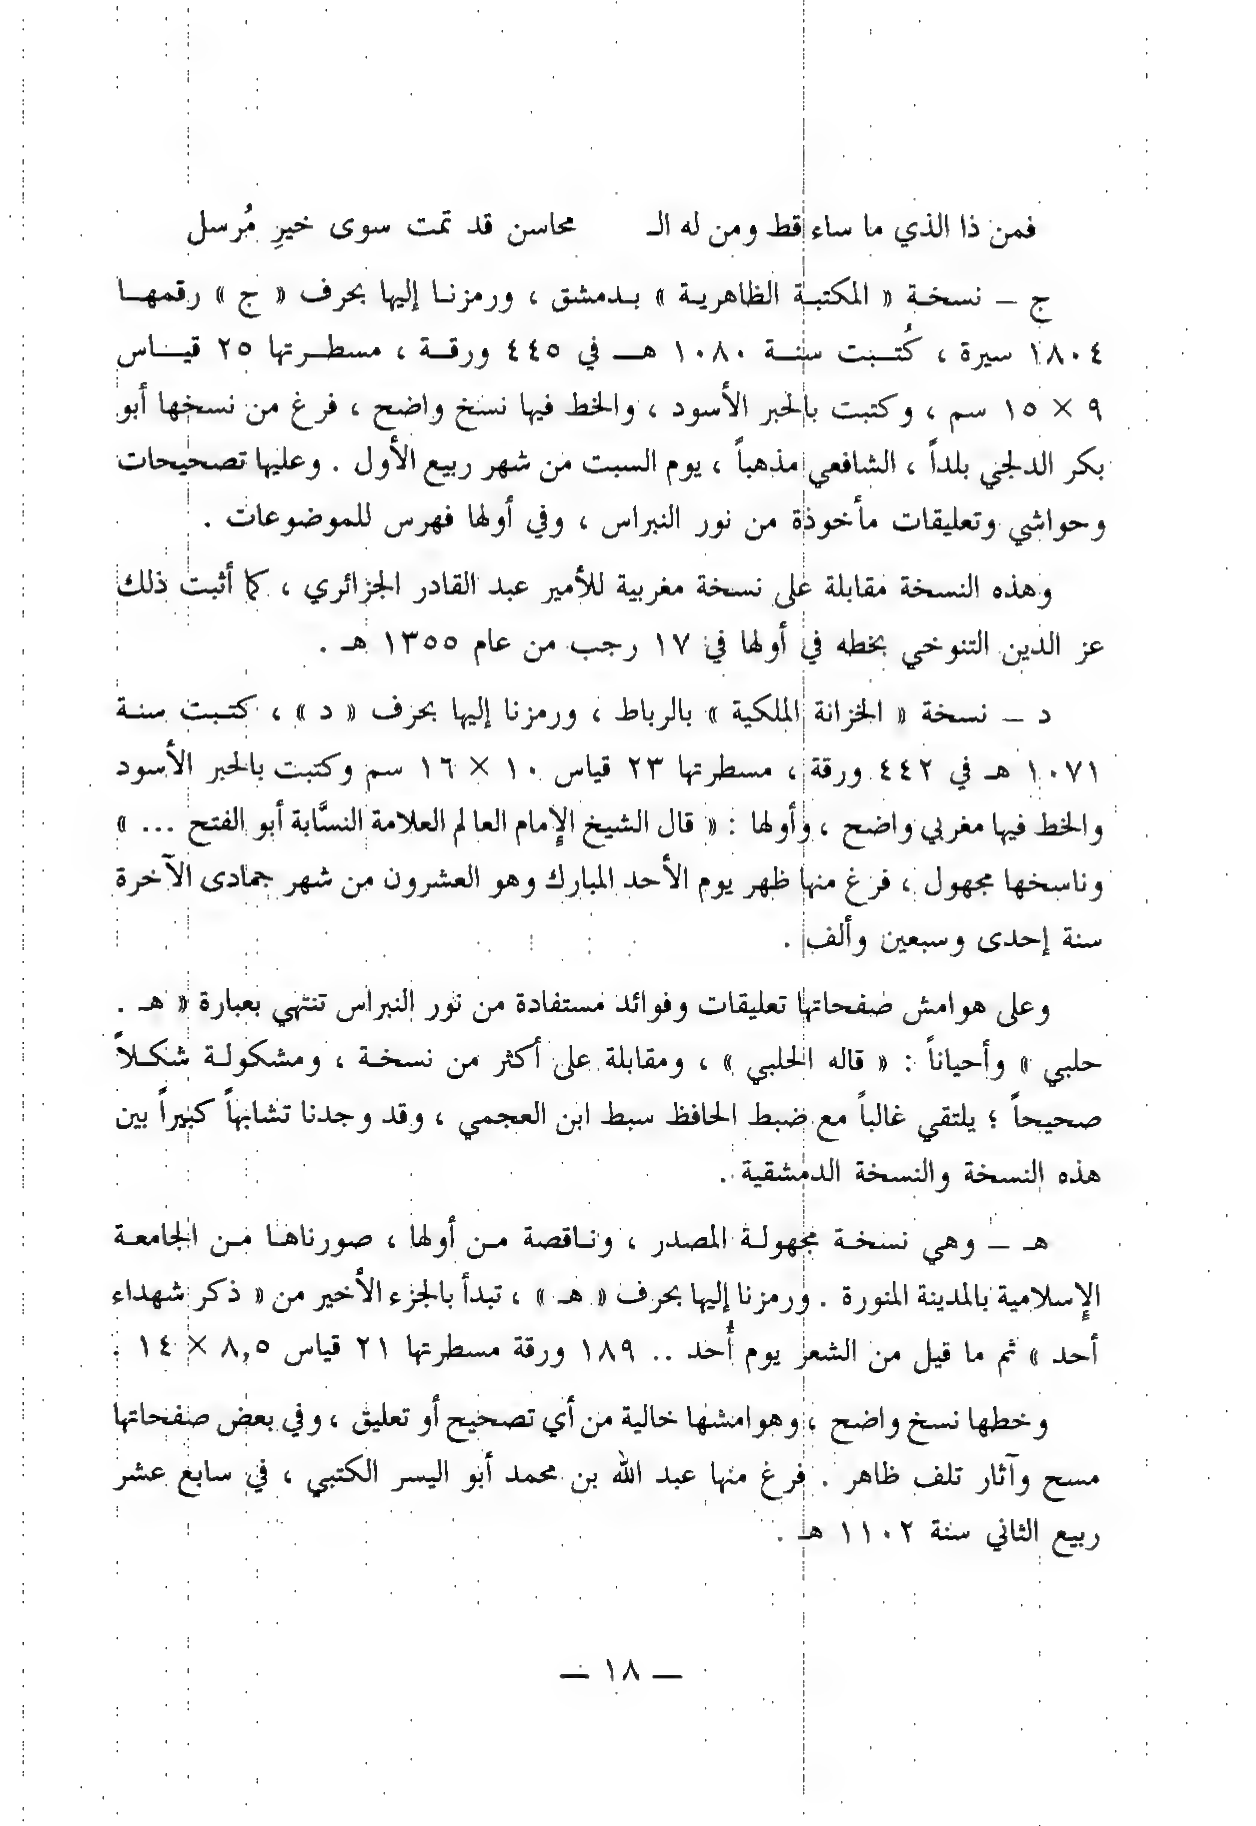 فمن ذا الذي ما ساء قط ومن له الـ محاسن قد تمت سوى خيرِ مُرسل
ج – نسخة « المكتبة الظاهرية » بدمشق ، ورمزنا إليها بحرف « ج » رقمها
١٨٠٤ سيرة ، كُتبت سنة ١٠٨٠ هـ في ٤٤٥ ورقة ، مسطرتها ٢٥ قياس
٩ × ١٥ سم ، وكتبت بالحبر الأسود ، والخط فيها نسخ واضح ، فرغ من نسخها أبو
بكر الدلجي بلداً ، الشافعي مذهباً ، يوم السبت من شهر ربيع الأول . وعليها تصحيحات
وحواشي وتعليقات مأخوذة من نور النبراس ، وفي أولها فهرس للموضوعات .
وهذه النسخة مقابلة على نسخة مغربية للأمير عبد القادر الجزائري ، كما أثبت ذلك
عز الدين التنوخي بخطه في أولها في ١٧ رجب من عام ١٣٥٥ هـ .
د – نسخة « الخزانة الملكية » بالرباط ، ورمزنا إليها بحرف « د » ، كتبت سنة
١٠٧١ هـ في ٤٤٢ ورقة ، مسطرتها ٢٣ قياس ١٠ × ١٦ سم وكتبت بالحبر الأسود
والخط فيها مغربي واضح ، وأولها : « قال الشيخ الإمام العالم العلامة النسَّابة أبو الفتح ... »
وناسخها مجهول ، فرغ منها ظهر يوم الأحد المبارك وهو العشرون من شهر جمادى الآخرة
سنة إحدى وسبعين وألف .
وعلى هوامش صفحاتها تعليقات وفوائد مستفادة من نور النبراس تنتهي بعبارة « هـ .
حلبي » وأحياناً : « قاله الحلبي » ، ومقابلة على أكثر من نسخة ، ومشكولة شكلاً
صحيحاً ؛ يلتقي غالباً مع ضبط الحافظ سبط ابن العجمي ، وقد وجدنا تشابهاً كبيراً بين
هذه النسخة والنسخة الدمشقية .
هـ – وهي نسخة مجهولة المصدر ، وناقصة من أولها ، صورناها من الجامعة
الإسلامية بالمدينة المنورة . ورمزنا إليها بحرف « هـ » ، تبدأ بالجزء الأخير من « ذكر شهداء
أحد » ثم ما قيل من الشعر يوم أُحد .. ١٨٩ ورقة مسطرتها ٢١ قياس ٨,٥ × ١٤ .
وخطها نسخ واضح ، وهوامشها خالية من أي تصحيح أو تعليق ، وفي بعض صفحاتها
مسح وآثار تلف ظاهر . فرغ منها عبد الله بن محمد أبو اليسر الكتبي ، في سابع عشر
ربيع الثاني سنة ١١٠٢ هـ .
– ١٨ –